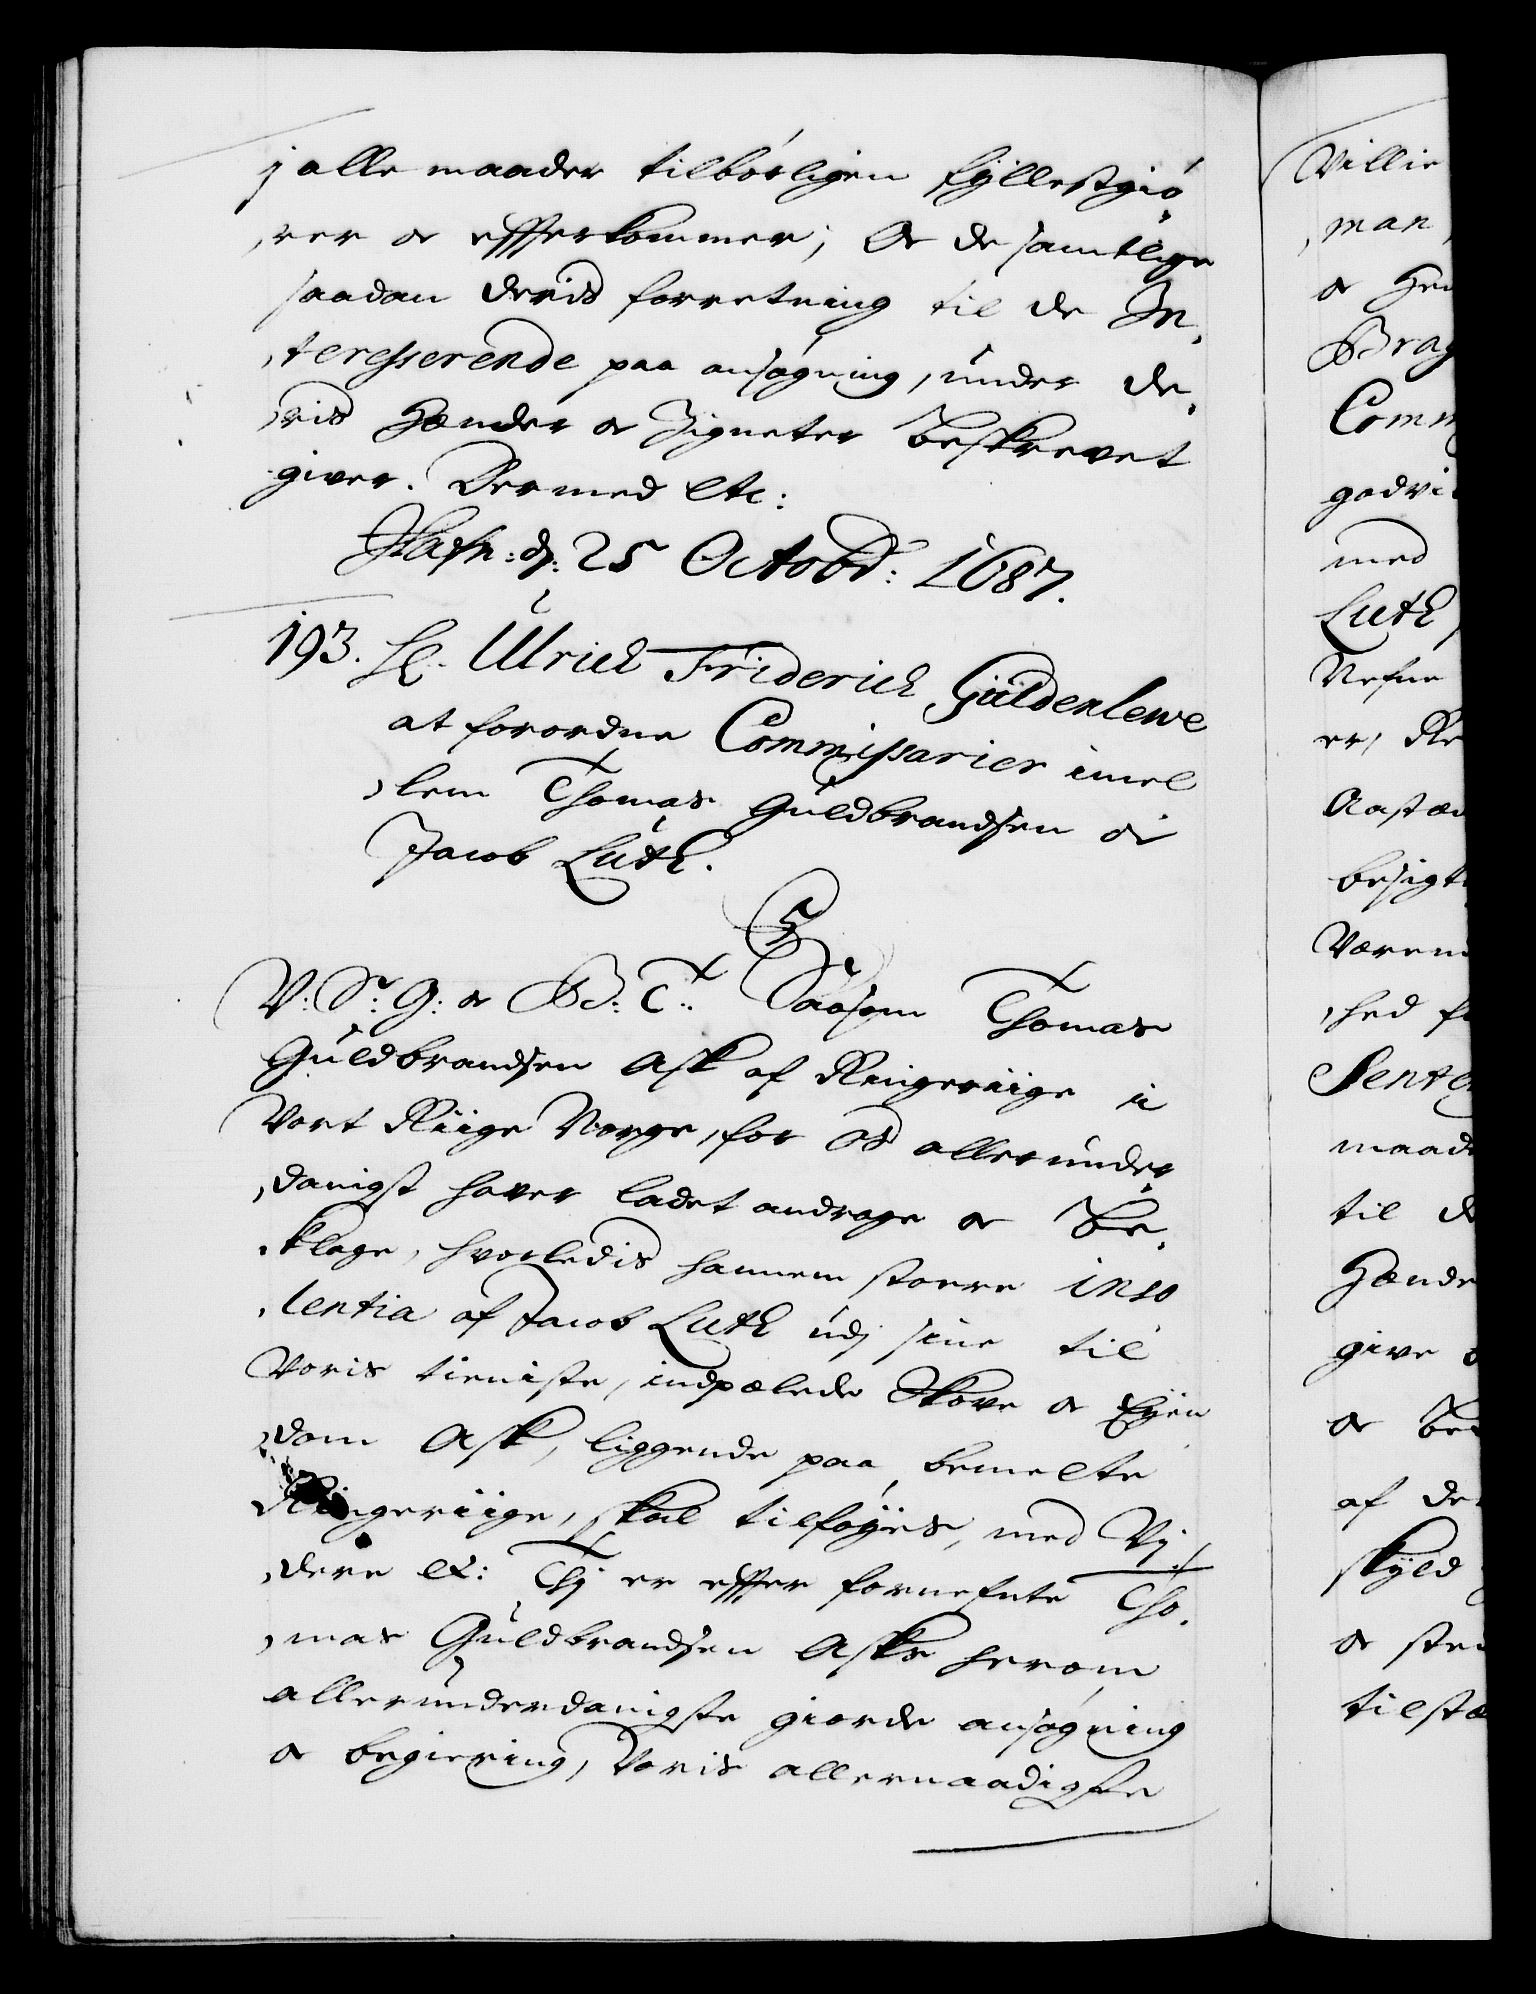 j alle maader tilbörligen fyllestgiö,
,rer og efferkommer; Og de samtlige
saadan deris forretning til de In,
,teresserende paa ansøgning, under de,
,ris Hænder og Zigneter beskrevet
giver. Dermed etc:
Hafn: d: 25 Octobr: 1687.
193. Hl. Ulrich Friderich Güldenlewe
at forordne Commissarier imel
,lem Thomas Guldbrandsen og
Jacob Luth.
C5
V: Sr. G: og B: T: Saasom Thomas
Guldbrandsen Ask af Ringeriige ii
Vort Riige Norge, for Os allerunder,
,danigst haver ladet andrage og be,
,klage, hvorledis hannem stoere inso
,lentia af Jacob Luth udj sine til
Voris tieniste, indpælede Skove og Eyen
,dom Ask, liggende paa bemelte
Ringeriige, skal tilføyes, med Vj,
,dere etc: Thj er effer fornefnte Tho,
,mas Guldbrandsen Aske herom
allerunderdanigste giorde ansøgning
og begiering, Voris allernaadigste
Villie
,man,
og Hen
Brag
Comm
godvi
med
Luth,
Nefne
er, Re
Aastæ
besigt
Værem
,hed f
Senten
maad
til d
Hænde
give o
og be
af de
skyld
og ste
tilstæ